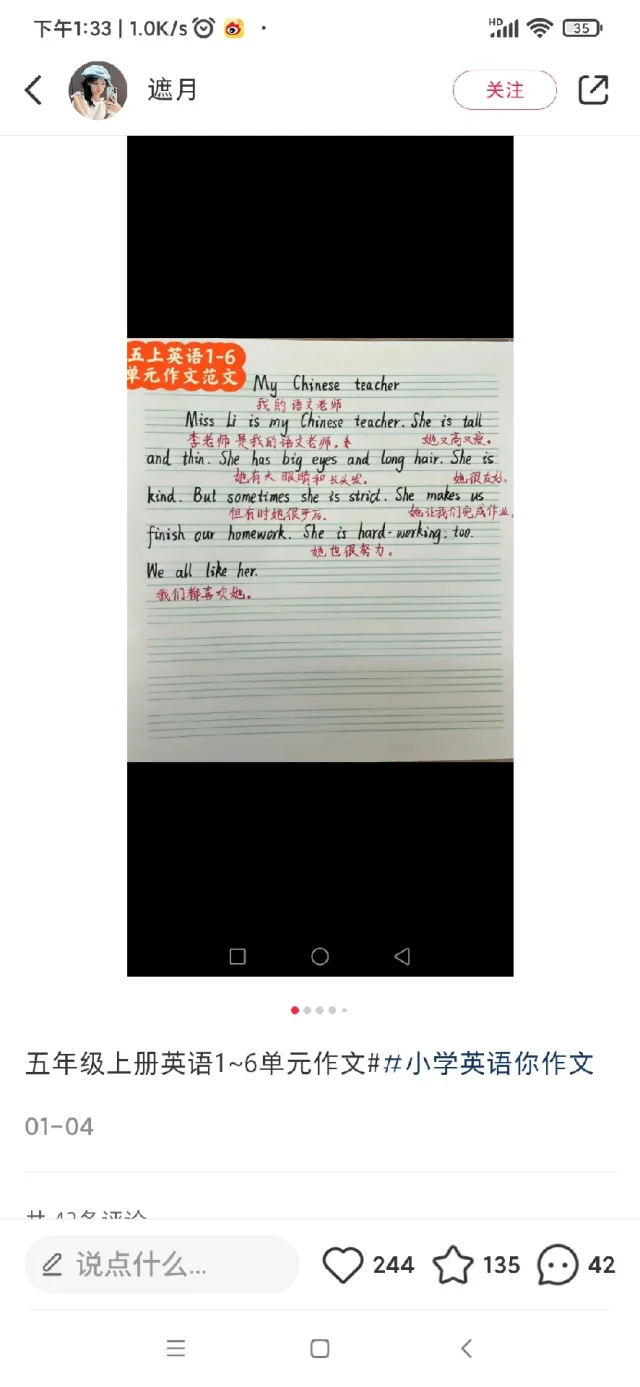 下午1:33 | 1.0K/s
HD 35
遮月
关注
五上英语1-6
单元作文范文
My Chinese teacher
我的语文老师
Miss Li is my Chinese teacher. She is tall
李老师是我的语文老师, 她又高又瘦。
and thin. She has big eyes and long hair. She is
她有大眼睛和长头发。 她很友好,
kind. But sometimes she is strict. She makes us
但有时她很严厉。 她让我们完成作业,
finish our homework. She is hard-working, too.
她也很努力。
We all like her.
我们都喜欢她。
五年级上册英语1~6单元作文##小学英语你作文
01-04
共 42条评论
说点什么... 244 135 42